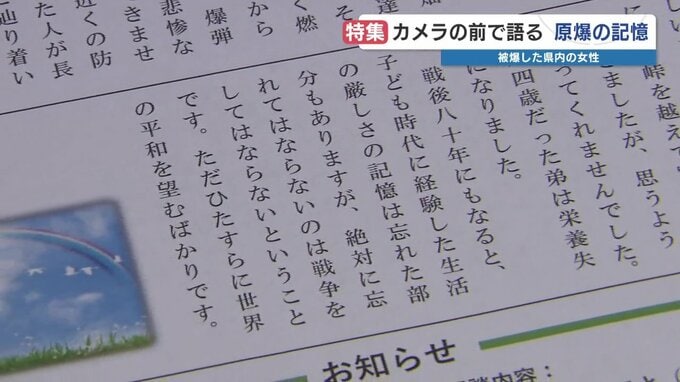 特集 カメラの前で語る 原爆の記憶
被爆した県内の女性
峠を越えて
ましたが、思うよう
ってくれませんでした。
四歳だった弟は栄養失
になりました。
戦後八十年にもなると、
子ども時代に経験した生活
の厳しさの記憶は忘れた部
分もありますが、絶対に忘
れてはならないのは戦争を
してはならないということ
です。ただひたすらに世界
の平和を望むばかりです。
く燃
から
爆弾
悲惨な
きませ
近くの防
た人が長
に辿り着い
お知らせ
内容：